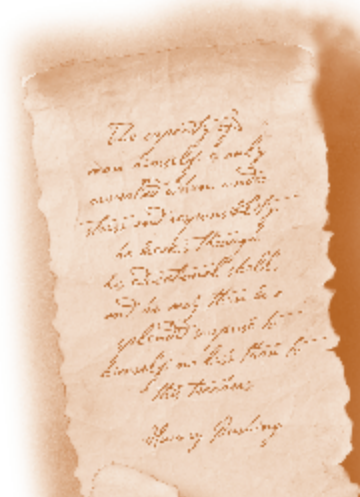 The capacity of a
man himself is only
revealed when under
stress and responsibility
he breaks through
his educational shell,
and he may then be a
splendid surprise to
himself no less than to
his teachers
Harvey Cushing